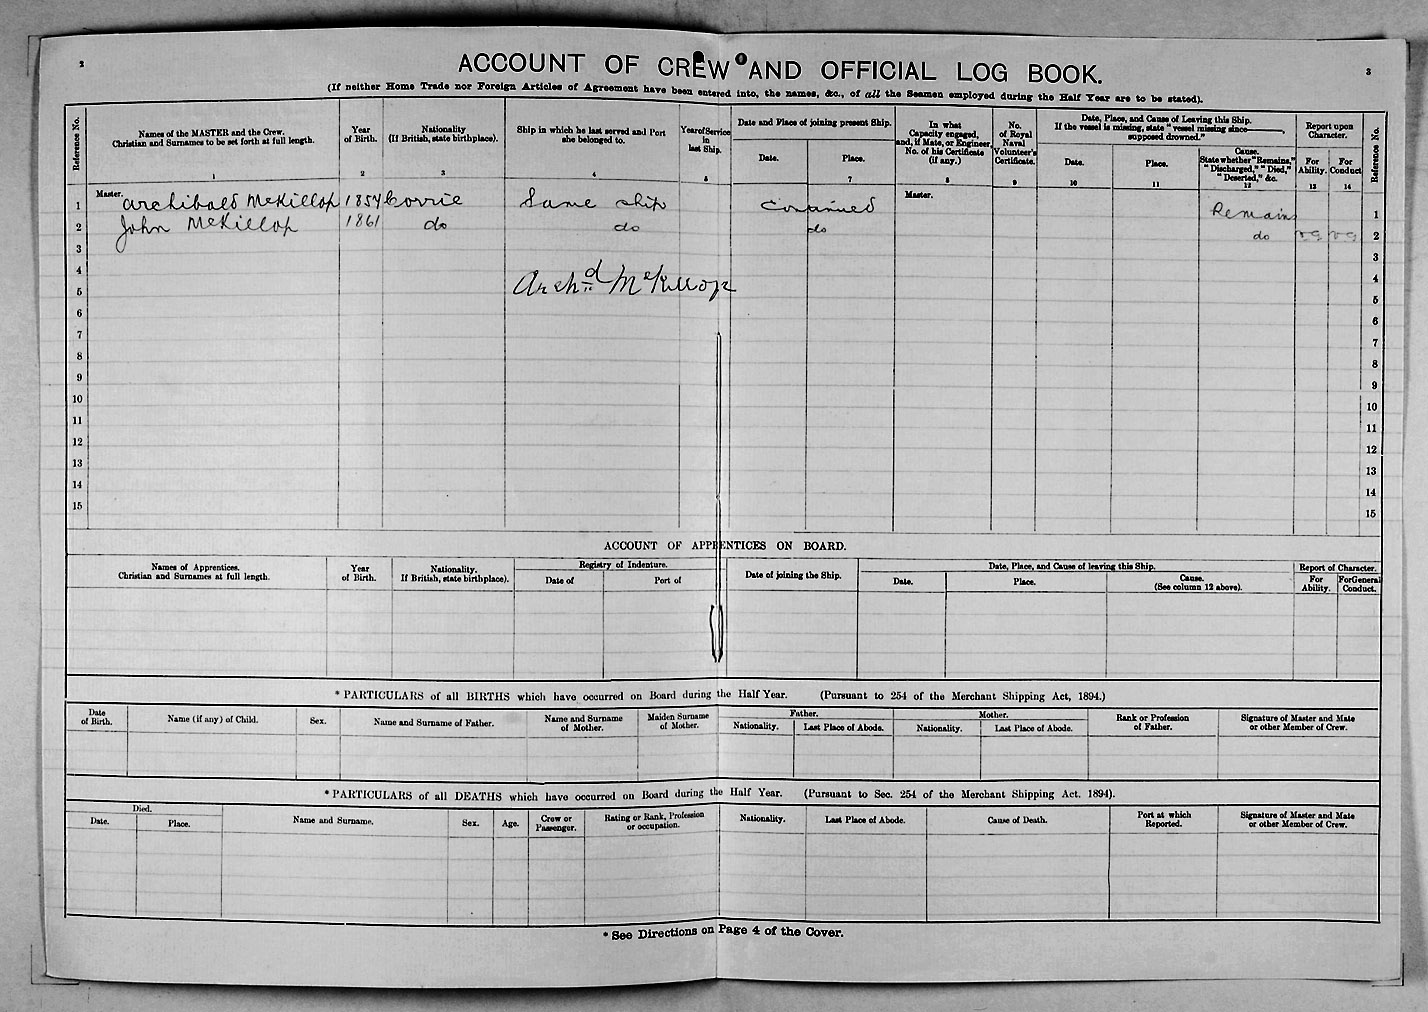 2
3
ACCOUNT OF CREW AND OFFICIAL LOG BOOK.
(If neither Home Trade nor Foreign Articles of Agreement have been entered into, the names, &c., of all the Seamen employed during the Half Year are to be stated).
Reference No.
Names of the MASTER and the Crew. Christian and Surnames to be set forth at full length.
Year of Birth.
Nationality (If British, state birthplace).
Ship in which he last served and Port she belonged to.
Year of Service in last Ship.
Date and Place of joining present Ship.
Date.
Place.
In what Capacity engaged, and, if Mate, or Engineer, No. of his Certificate (if any.)
No. of Royal Naval Volunteer's Certificate.
Date, Place, and Cause of Leaving this Ship.
If the vessel is missing, state "vessel missing since ———, supposed drowned."
Date.
Place.
Cause. State whether "Remains," "Discharged," "Died," "Deserted," &c.
Report upon Character.
For Ability.
For Conduct
Reference No.
1 2 3 4 5 7 8 9 10 11 12 13 14
1 Master. Archibald McKillop 1854 Corrie Same ship Continued Master. Remains 1
2 John McKillop 1861 do do do do VG VG 2
3 3
4 4
Archd McKillop
5 5
6 6
7 7
8 8
9 9
10 10
11 11
12 12
13 13
14 14
15 15
ACCOUNT OF APPRENTICES ON BOARD.
Names of Apprentices. Christian and Surnames at full length.
Year of Birth.
Nationality. If British, state birthplace).
Registry of Indenture.
Date of
Port of
Date of joining the Ship.
Date, Place, and Cause of leaving this Ship.
Date.
Place.
Cause. (See column 12 above).
Report of Character.
For Ability.
For General Conduct.
* PARTICULARS of all BIRTHS which have occurred on Board during the Half Year. (Pursuant to 254 of the Merchant Shipping Act, 1894.)
Date of Birth.
Name (if any) of Child.
Sex.
Name and Surname of Father.
Name and Surname of Mother.
Maiden Surname of Mother.
Father.
Nationality.
Last Place of Abode.
Mother.
Nationality.
Last Place of Abode.
Rank or Profession of Father.
Signature of Master and Mate or other Member of Crew.
* PARTICULARS of all DEATHS which have occurred on Board during the Half Year. (Pursuant to Sec. 254 of the Merchant Shipping Act. 1894).
Died.
Date.
Place.
Name and Surname.
Sex.
Age.
Crew or Passenger.
Rating or Rank, Profession or occupation.
Nationality.
Last Place of Abode.
Cause of Death.
Port at which Reported.
Signature of Master and Mate or other Member of Crew.
* See Directions on Page 4 of the Cover.